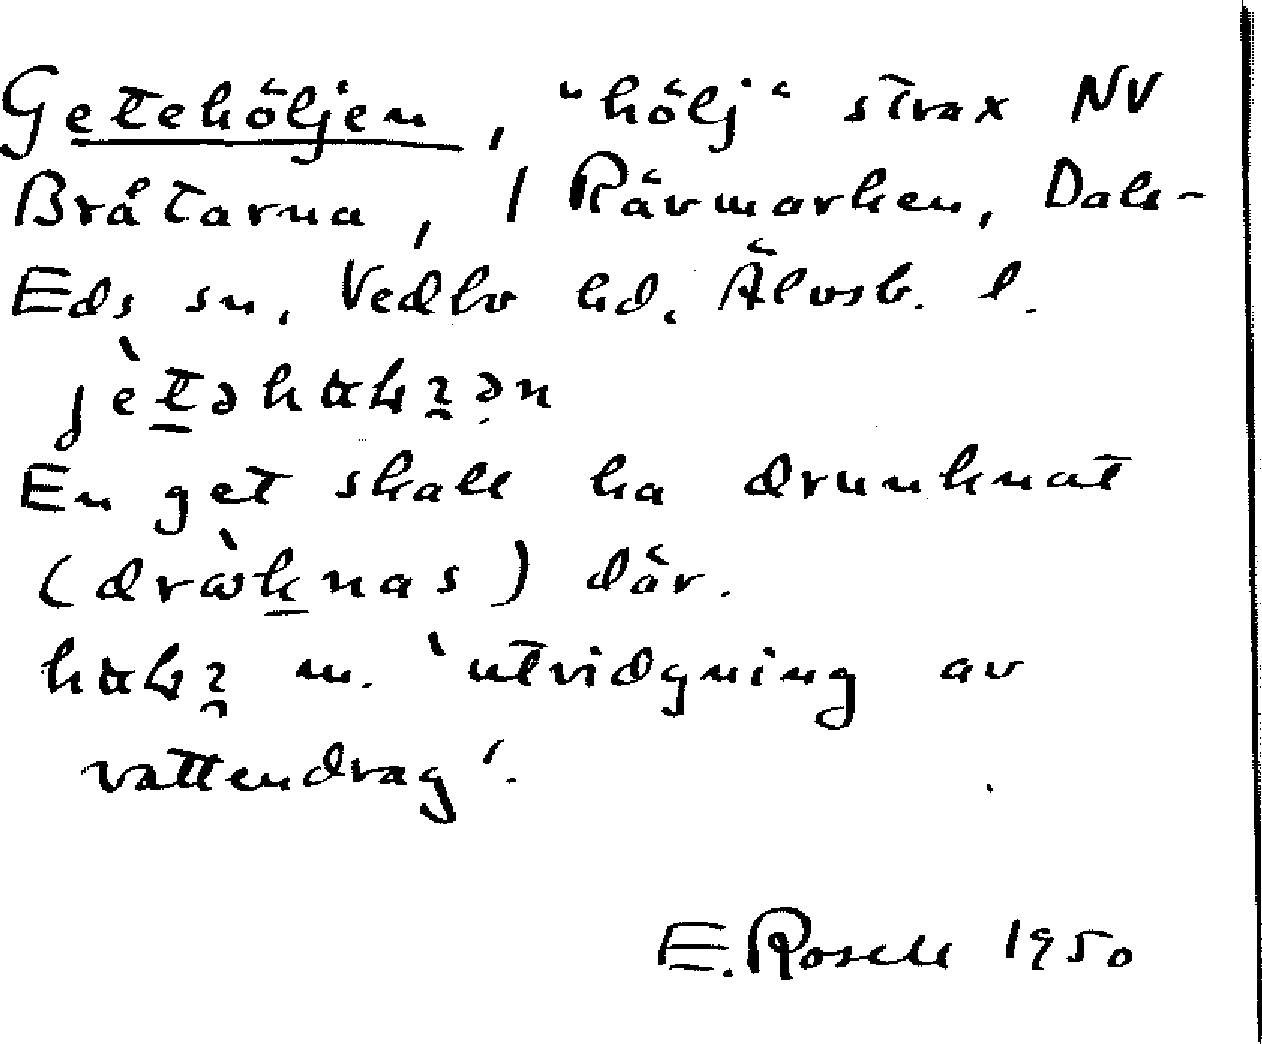 Getehöljen, "hölj" strax NV
Bråtarna, 1 Rävmarken, Dals-
Eds sn, Vedbo hd. Älvsb. l.
En get skall ha drunknat
där.
m. 'utvidgning av
vattendrag'.
E. Rosell 1950